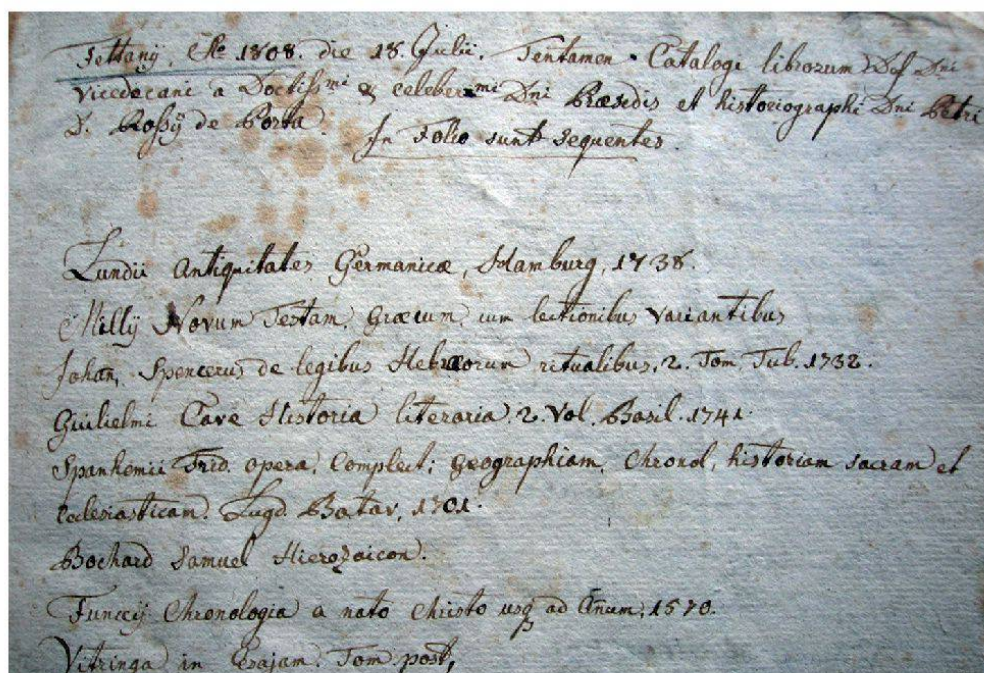 Fettanj. Ao 1808. die 18. Julii. Tentamen Catalogi librorum Dni
Vicedecani a Doctissmi & celeberrmi Dni Præsidis et historiographi Dni Petri
D. Rosij de Porta.
In Folio sunt sequentes.
Lundii Antiquitates Germanicæ, Hamburg, 1738.
Millij Novum Testam. Græcum, cum lectionibus variantibus
Johan, Spencerus de legibus Hebræorum ritualibus, 2. Tom. Tub. 1732.
Guilielmi Cave Historia literaria 2. Vol. Basil. 1741.
Spanhemii Frid. opera, Complect; geographiam, Chronol, historiam sacram et
ecclesiasticam. Lugd. Batav, 1701.
Bochard Samuel Hierozaicon.
Funccij Chronologia a nato Christo usq ad Anum, 1570.
Vitringa in Esajam. Tom. post,